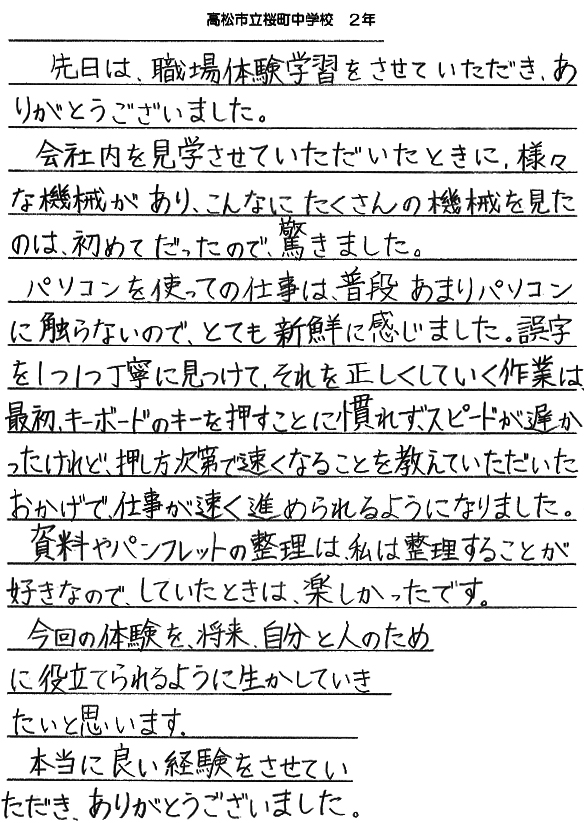 高松市立桜町中学校　2年
先日は、職場体験学習をさせていただき、あ
りがとうございました。
会社内を見学させていただいたときに、様々
な機械があり、こんなにたくさんの機械を見た
のは、初めてだったので、驚きました。
パソコンを使っての仕事は、普段あまりパソコン
に触らないので、とても新鮮に感じました。誤字
を1つ1つ丁寧に見つけて、それを正しくしていく作業は、
最初、キーボードのキーを押すことに慣れず、スピードが遅か
ったけれど、押し方次第で速くなることを教えていただいた
おかげで、仕事が速く進められるようになりました。
資料やパンフレットの整理は、私は整理することが
好きなので、していたときは、楽しかったです。
今回の体験を、将来、自分と人のため
に役立てられるように生かしていき
たいと思います。
本当に良い経験をさせてい
ただき、ありがとうございました。